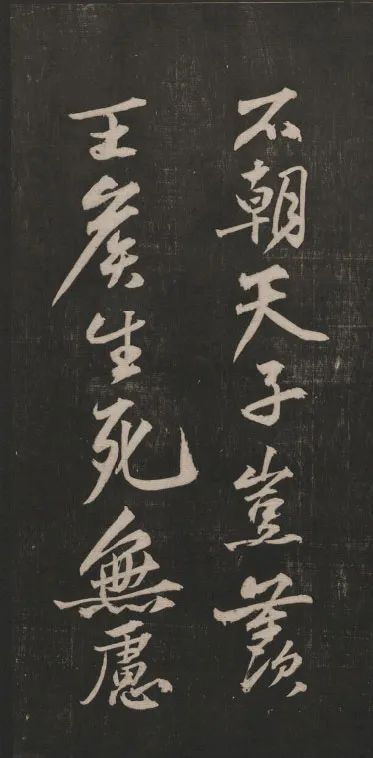 不朝天子豈羡
王侯生死無慮